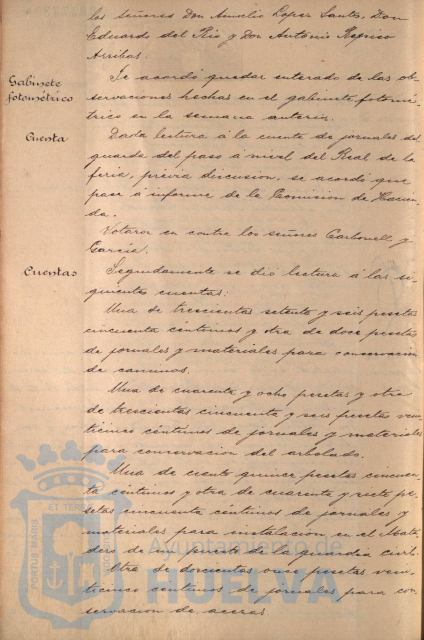 los señores Don Amelio Lopez Santo, Don
Eduardo del Rio y Don Antonio
Arribas.
Gabinete
fotométrico
Se acordó quedar enterado de las ob-
servaciones hechas en el gabinete fotomé-
trico en la semana anterior.
Cuenta
Dada lectura á la cuenta de jornales del
guarda del paso á nivel del Real de la
feria, previa discusion, se acordó que
pase á informe de la Comision de Hacien-
da.
Votaron en contra los señores Carbonell y
Garcia.
Cuentas
Seguidamente se dió lectura á las si-
guientes cuentas:
Una de trescientas setenta y seis pesetas
cincuenta céntimos y otra de doce pesetas
de jornales y materiales para conservacion
de caminos.
Una de cuarenta y ocho pesetas y otra
de trescientas cincuenta y seis pesetas vein-
ticinco céntimos de jornales y materiales
para conservacion del arbolado.
Una de ciento quince pesetas cincuen-
ta céntimos y otra de cuarenta y siete pe-
setas cincuenta céntimos de jornales y
materiales para instalacion en el Mata-
dero de un puesto de la guardia civil.
Otra de doscientas once pesetas vein-
ticinco céntimos de jornales para con-
servacion de aceras.
PORTUS MARIS ET TERRE
Ayuntamiento de
HUELVA